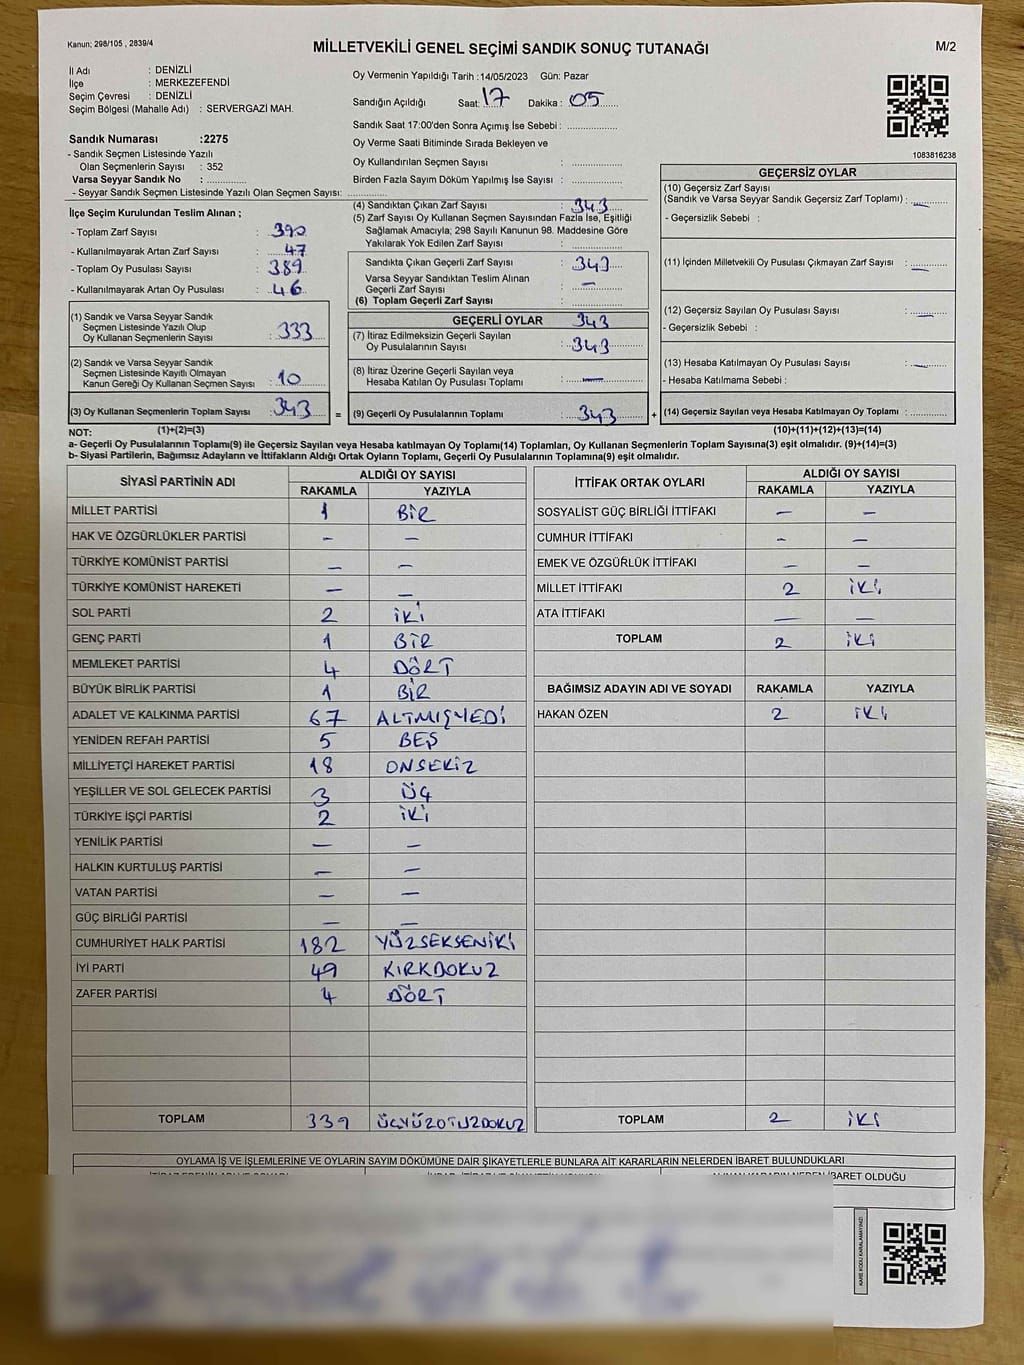 Kanun: 298/105 , 2839/4
MİLLETVEKİLİ GENEL SEÇİMİ SANDIK SONUÇ TUTANAĞI
M/2
İl Adı : DENİZLİ
İlçe : MERKEZEFENDİ
Seçim Çevresi : DENİZLİ
Seçim Bölgesi (Mahalle Adı) : SERVERGAZİ MAH.
Sandık Numarası :2275
- Sandık Seçmen Listesinde Yazılı
Olan Seçmenlerin Sayısı : 352
Varsa Seyyar Sandık No :
- Seyyar Sandık Seçmen Listesinde Yazılı Olan Seçmen Sayısı:
Oy Vermenin Yapıldığı Tarih :14/05/2023 Gün: Pazar
Sandığın Açıldığı Saat: 17 Dakika : 05
Sandık Saat 17:00'den Sonra Açımış İse Sebebi :
Oy Verme Saati Bitiminde Sırada Bekleyen ve
Oy Kullandırılan Seçmen Sayısı :
Birden Fazla Sayım Döküm Yapılmış İse Sayısı :
1083816238
İlçe Seçim Kurulundan Teslim Alınan ;
- Toplam Zarf Sayısı : 390
- Kullanılmayarak Artan Zarf Sayısı : 47
- Toplam Oy Pusulası Sayısı : 389
- Kullanılmayarak Artan Oy Pusulası : 46
(1) Sandık ve Varsa Seyyar Sandık
Seçmen Listesinde Yazılı Olup
Oy Kullanan Seçmenlerin Sayısı : 333
(2) Sandık ve Varsa Seyyar Sandık
Seçmen Listesinde Kayıtlı Olmayan
Kanun Gereği Oy Kullanan Seçmen Sayısı : 10
(3) Oy Kullanan Seçmenlerin Toplam Sayısı : 343
(1)+(2)=(3)
(4) Sandıktan Çıkan Zarf Sayısı : 343
(5) Zarf Sayısı Oy Kullanan Seçmen Sayısından Fazla İse, Eşitliği
Sağlamak Amacıyla; 298 Sayılı Kanunun 98. Maddesine Göre
Yakılarak Yok Edilen Zarf Sayısı :
Sandıkta Çıkan Geçerli Zarf Sayısı : 343
Varsa Seyyar Sandıktan Teslim Alınan
Geçerli Zarf Sayısı : —
(6) Toplam Geçerli Zarf Sayısı :
GEÇERLİ OYLAR 343
(7) İtiraz Edilmeksizin Geçerli Sayılan
Oy Pusulalarının Sayısı : 343
(8) İtiraz Üzerine Geçerli Sayılan veya
Hesaba Katılan Oy Pusulası Toplamı : —
= (9) Geçerli Oy Pusulalarının Toplamı : 343 +
GEÇERSİZ OYLAR
(10) Geçersiz Zarf Sayısı
(Sandık ve Varsa Seyyar Sandık Geçersiz Zarf Toplamı) : —
- Geçersizlik Sebebi :
(11) İçinden Milletvekili Oy Pusulası Çıkmayan Zarf Sayısı : —
(12) Geçersiz Sayılan Oy Pusulası Sayısı : —
- Geçersizlik Sebebi :
(13) Hesaba Katılmayan Oy Pusulası Sayısı : —
- Hesaba Katılmama Sebebi :
(14) Geçersiz Sayılan veya Hesaba Katılmayan Oy Toplamı :
(10)+(11)+(12)+(13)=(14)
NOT:
a- Geçerli Oy Pusulalarının Toplamı(9) ile Geçersiz Sayılan veya Hesaba katılmayan Oy Toplamı(14) Toplamları, Oy Kullanan Seçmenlerin Toplam Sayısına(3) eşit olmalıdır. (9)+(14)=(3)
b- Siyasi Partilerin, Bağımsız Adayların ve İttifakların Aldığı Ortak Oyların Toplamı, Geçerli Oy Pusulalarının Toplamına(9) eşit olmalıdır.
SİYASİ PARTİNİN ADI ALDIĞI OY SAYISI
RAKAMLA YAZIYLA
MİLLET PARTİSİ 1 BİR
HAK VE ÖZGÜRLÜKLER PARTİSİ — —
TÜRKİYE KOMÜNİST PARTİSİ — —
TÜRKİYE KOMÜNİST HAREKETİ — —
SOL PARTİ 2 İKİ
GENÇ PARTİ 1 BİR
MEMLEKET PARTİSİ 4 DÖRT
BÜYÜK BİRLİK PARTİSİ 1 BİR
ADALET VE KALKINMA PARTİSİ 67 ALTMIŞYEDİ
YENİDEN REFAH PARTİSİ 5 BEŞ
MİLLİYETÇİ HAREKET PARTİSİ 18 ONSEKİZ
YEŞİLLER VE SOL GELECEK PARTİSİ 3 ÜÇ
TÜRKİYE İŞÇİ PARTİSİ 2 İKİ
YENİLİK PARTİSİ — —
HALKIN KURTULUŞ PARTİSİ — —
VATAN PARTİSİ — —
GÜÇ BİRLİĞİ PARTİSİ — —
CUMHURİYET HALK PARTİSİ 182 YÜZSEKSENİKİ
İYİ PARTİ 49 KIRKDOKUZ
ZAFER PARTİSİ 4 DÖRT
TOPLAM 339 ÜÇYÜZOTUZDOKUZ
İTTİFAK ORTAK OYLARI ALDIĞI OY SAYISI
RAKAMLA YAZIYLA
SOSYALİST GÜÇ BİRLİĞİ İTTİFAKI — —
CUMHUR İTTİFAKI — —
EMEK VE ÖZGÜRLÜK İTTİFAKI — —
MİLLET İTTİFAKI 2 İKİ
ATA İTTİFAKI — —
TOPLAM 2 İKİ
BAĞIMSIZ ADAYIN ADI VE SOYADI RAKAMLA YAZIYLA
HAKAN ÖZEN 2 İKİ
TOPLAM 2 İKİ
OYLAMA İŞ VE İŞLEMLERİNE VE OYLARIN SAYIM DÖKÜMÜNE DAİR ŞİKAYETLERLE BUNLARA AİT KARARLARIN NELERDEN İBARET BULUNDUKLARI
İBARET OLDUĞU
KARE KODU KARALAMAYINIZ!